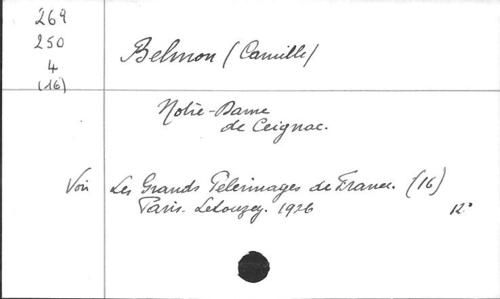 269
250
4
(16)
Belmon (Camille)
Notre-Dame
de Ceignac.
Voir Les Grands Pèlerinages de France. (16)
Paris. Letouzey. 1926 12°